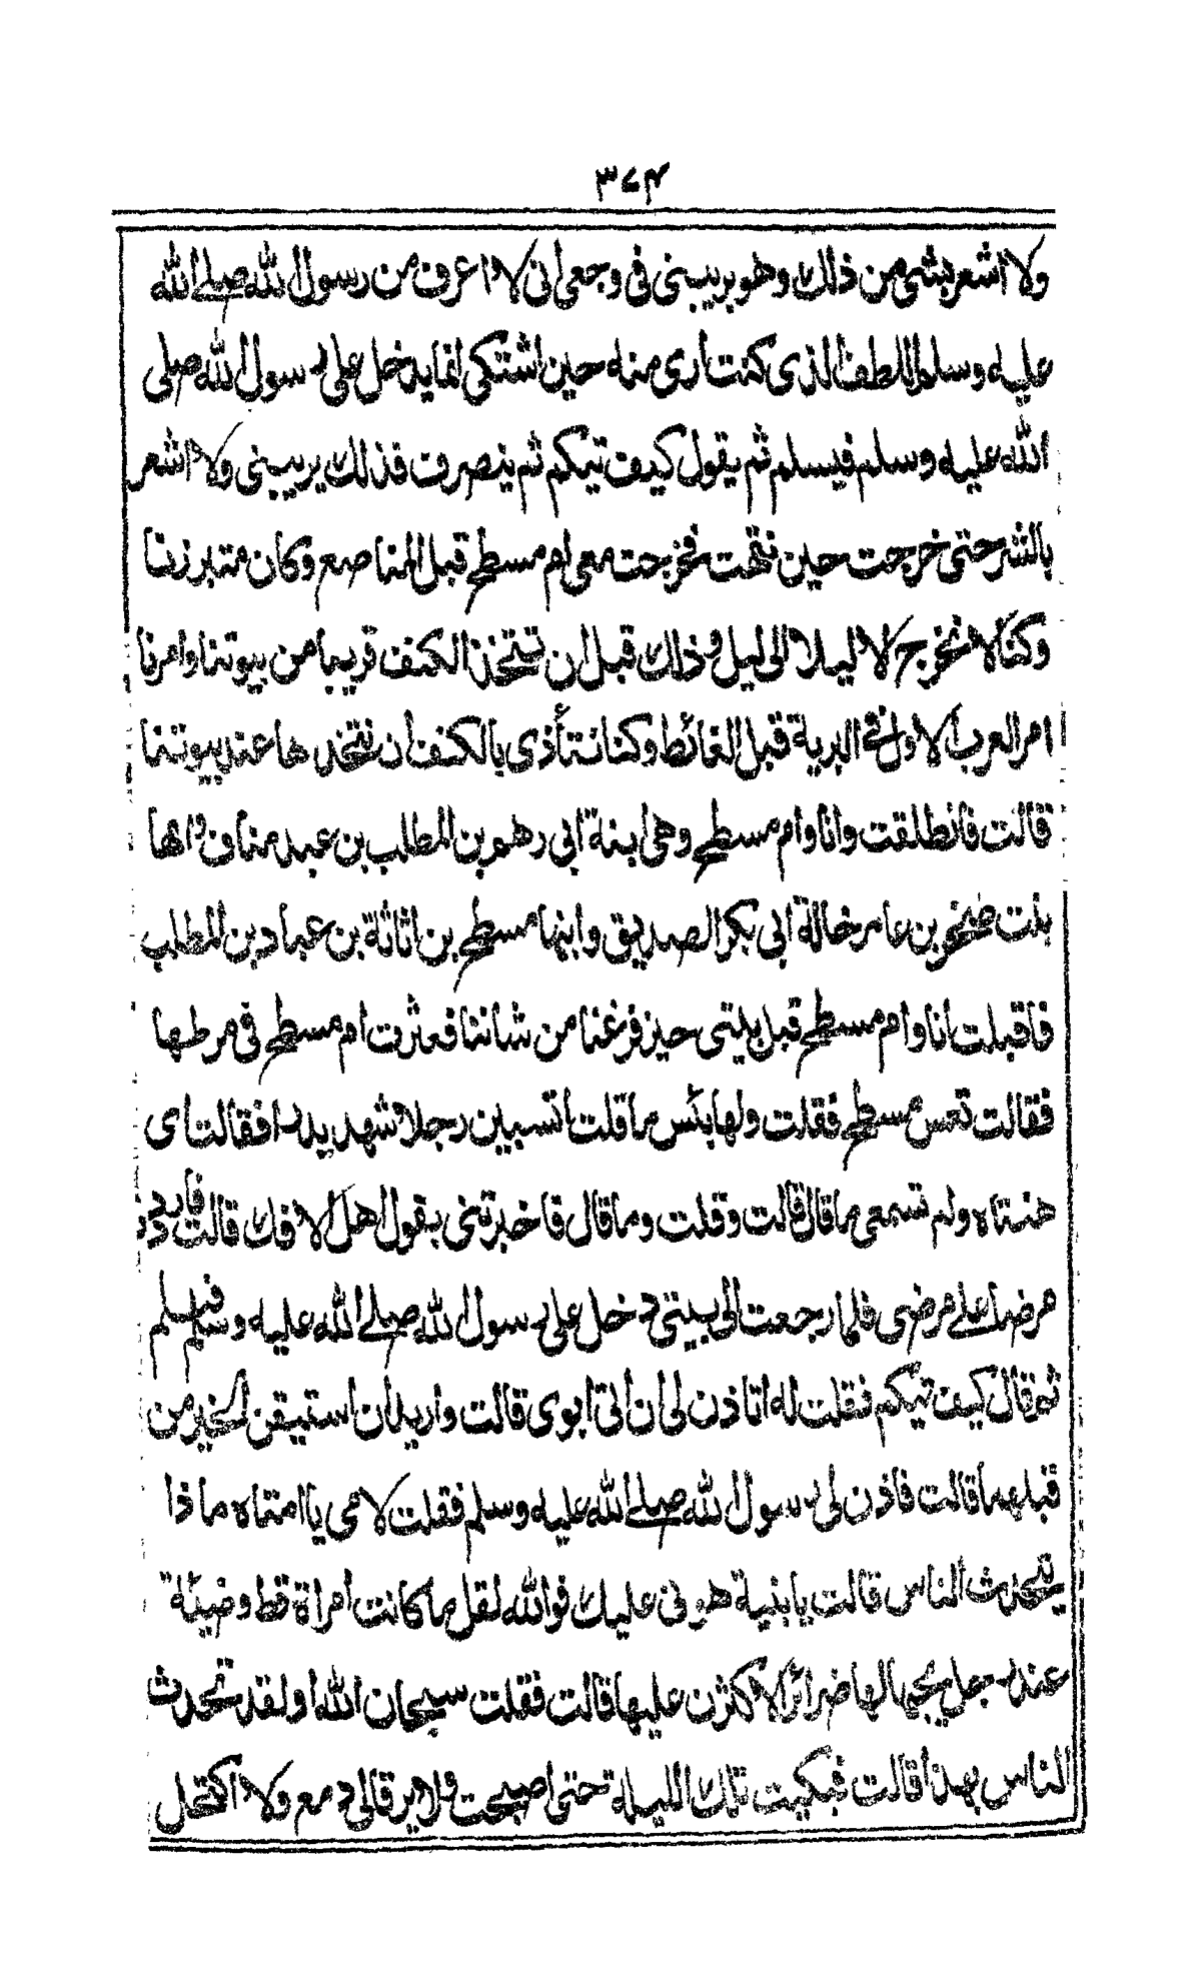 ٣٧٤
ولا اشعر بشي من ذلك وهو يريبني في وجعي اني لا اعرف من رسول الله صلے الله
عليه وسلم اللطف الذي كنت ارى منه حين اشتكي انما يدخل علي رسول الله صلى
الله عليه وسلم فيسلم ثم يقول كيف تيكم ثم ينصرف فذلك يريبني ولا اشعر
بالشر حتى خرجت حين نقهت فخرجت معي ام مسطح قبل المناصع وكان متبرزنا
وكنا لا نخرج الا ليلا الى ليل وذلك قبل ان تتخذ الكنف قريبا من بيوتنا وامرنا
امر العرب الاول في البرية قبل الغائط وكنا نتأذى بالكنف أن نتخذها عند بيوتنا
قالت فانطلقت وانا وام مسطح وهي ابنة ابي رهم بن المطلب بن عبد مناف وامها
بنت صخر بن عامر خالة ابي بكر الصديق وابنها مسطح بن اثاثة بن عباد بن المطلب
فاقبلت انا وام مسطح قبل بيتي حين فرغنا من شاننا فعثرت ام مسطح في مرطها
فقالت تعس مسطح فقلت ولها بئس ما قلت اتسبين رجلا شهد بدرا فقالت اي
هنتاه ولم تسمعي ما قال قالت وقلت وما قال فاخبرتني بقول اهل الافك قالت فازددت
مرضا علے مرضي فلما رجعت الى بيتي دخل علي رسول الله صلے الله عليه وسلم فسلم
ثم قال كيف تيكم فقلت له اتاذن لي ان اٰتي ابوي قالت واريد ان استيقن الخبر من
قبلهما قالت فاذن لي رسول الله صلے الله عليه وسلم فقلت لامي يا امتاه ماذا
يتحدث الناس قالت يا بنية هوني عليك فوالله لقل ما كانت أمراة قط وضيئة
عند رجل يحبها لها ضرائر الا كثرن عليها قالت فقلت سبحان الله أولقد تحدث
الناس بهذا قالت فبكيت تلك الليلة حتى اصبحت ولا يرقا لي دمع ولا اكتحل